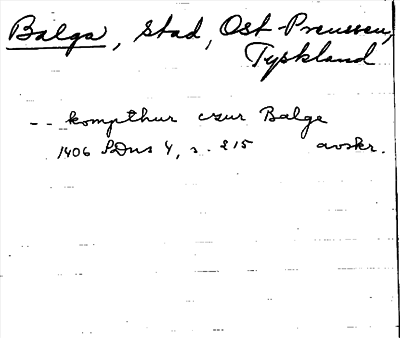 Balga, stad, Ost-Preussen,
Tyskland
-- kompthur czur Balge
1406 SDns 4, s. 215 avskr.